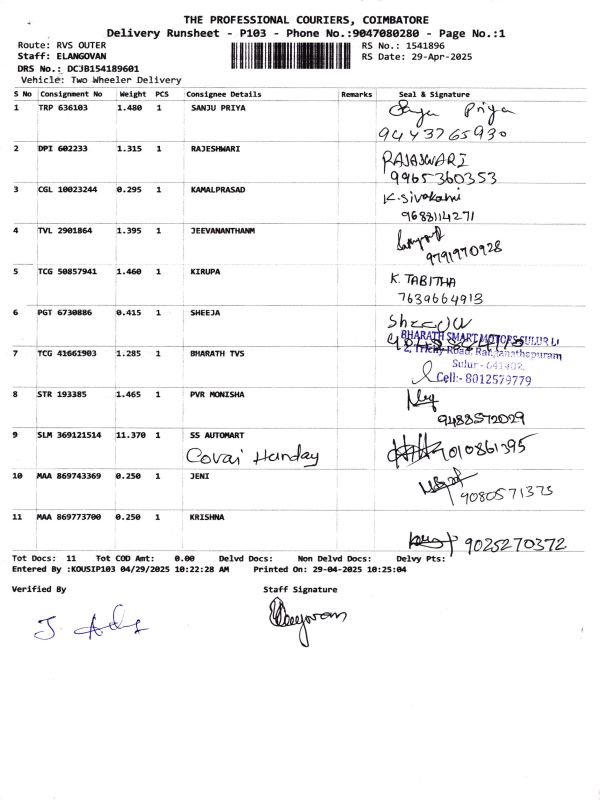 THE PROFESSIONAL COURIERS, COIMBATORE
Delivery Runsheet - P103 - Phone No.:9047080280 - Page No.:1
Route: RVS OUTER RS No.: 1541896
Staff: ELANGOVAN RS Date: 29-Apr-2025
DRS No.: DCJB154189601
Vehicle: Two Wheeler Delivery
S No Consignment No Weight PCS Consignee Details Remarks Seal & Signature
1 TRP 636103 1.480 1 SANJU PRIYA Priya
9443765930
2 DPI 602233 1.315 1 RAJESHWARI RAJASWARI
9965360353
3 CGL 10023244 0.295 1 KAMALPRASAD K.Sivakami
9688114271
4 TVL 2901864 1.395 1 JEEVANANTHANM
9791970928
5 TCG 50857941 1.460 1 KIRUPA K. TABITHA
7639664913
6 PGT 6730886 0.415 1 SHEEJA
BHARATH SMART MOTORS SULUR
7 TCG 41661903 1.285 1 BHARATH TVS 2, Trichy Road, Ranganathapuram
Sulur - 641402.
Cell:- 8012579779
8 STR 193385 1.465 1 PVR MONISHA
9488572029
9 SLM 369121514 11.370 1 SS AUTOMART
Covai Hunday 7010861395
10 MAA 869743369 0.250 1 JENI
9080571373
11 MAA 869773700 0.250 1 KRISHNA
9025270372
Tot Docs: 11 Tot COD Amt: 0.00 Delvd Docs: Non Delvd Docs: Delvy Pts:
Entered By :KOUSIP103 04/29/2025 10:22:28 AM Printed On: 29-04-2025 10:25:04
Verified By Staff Signature
Elangovan